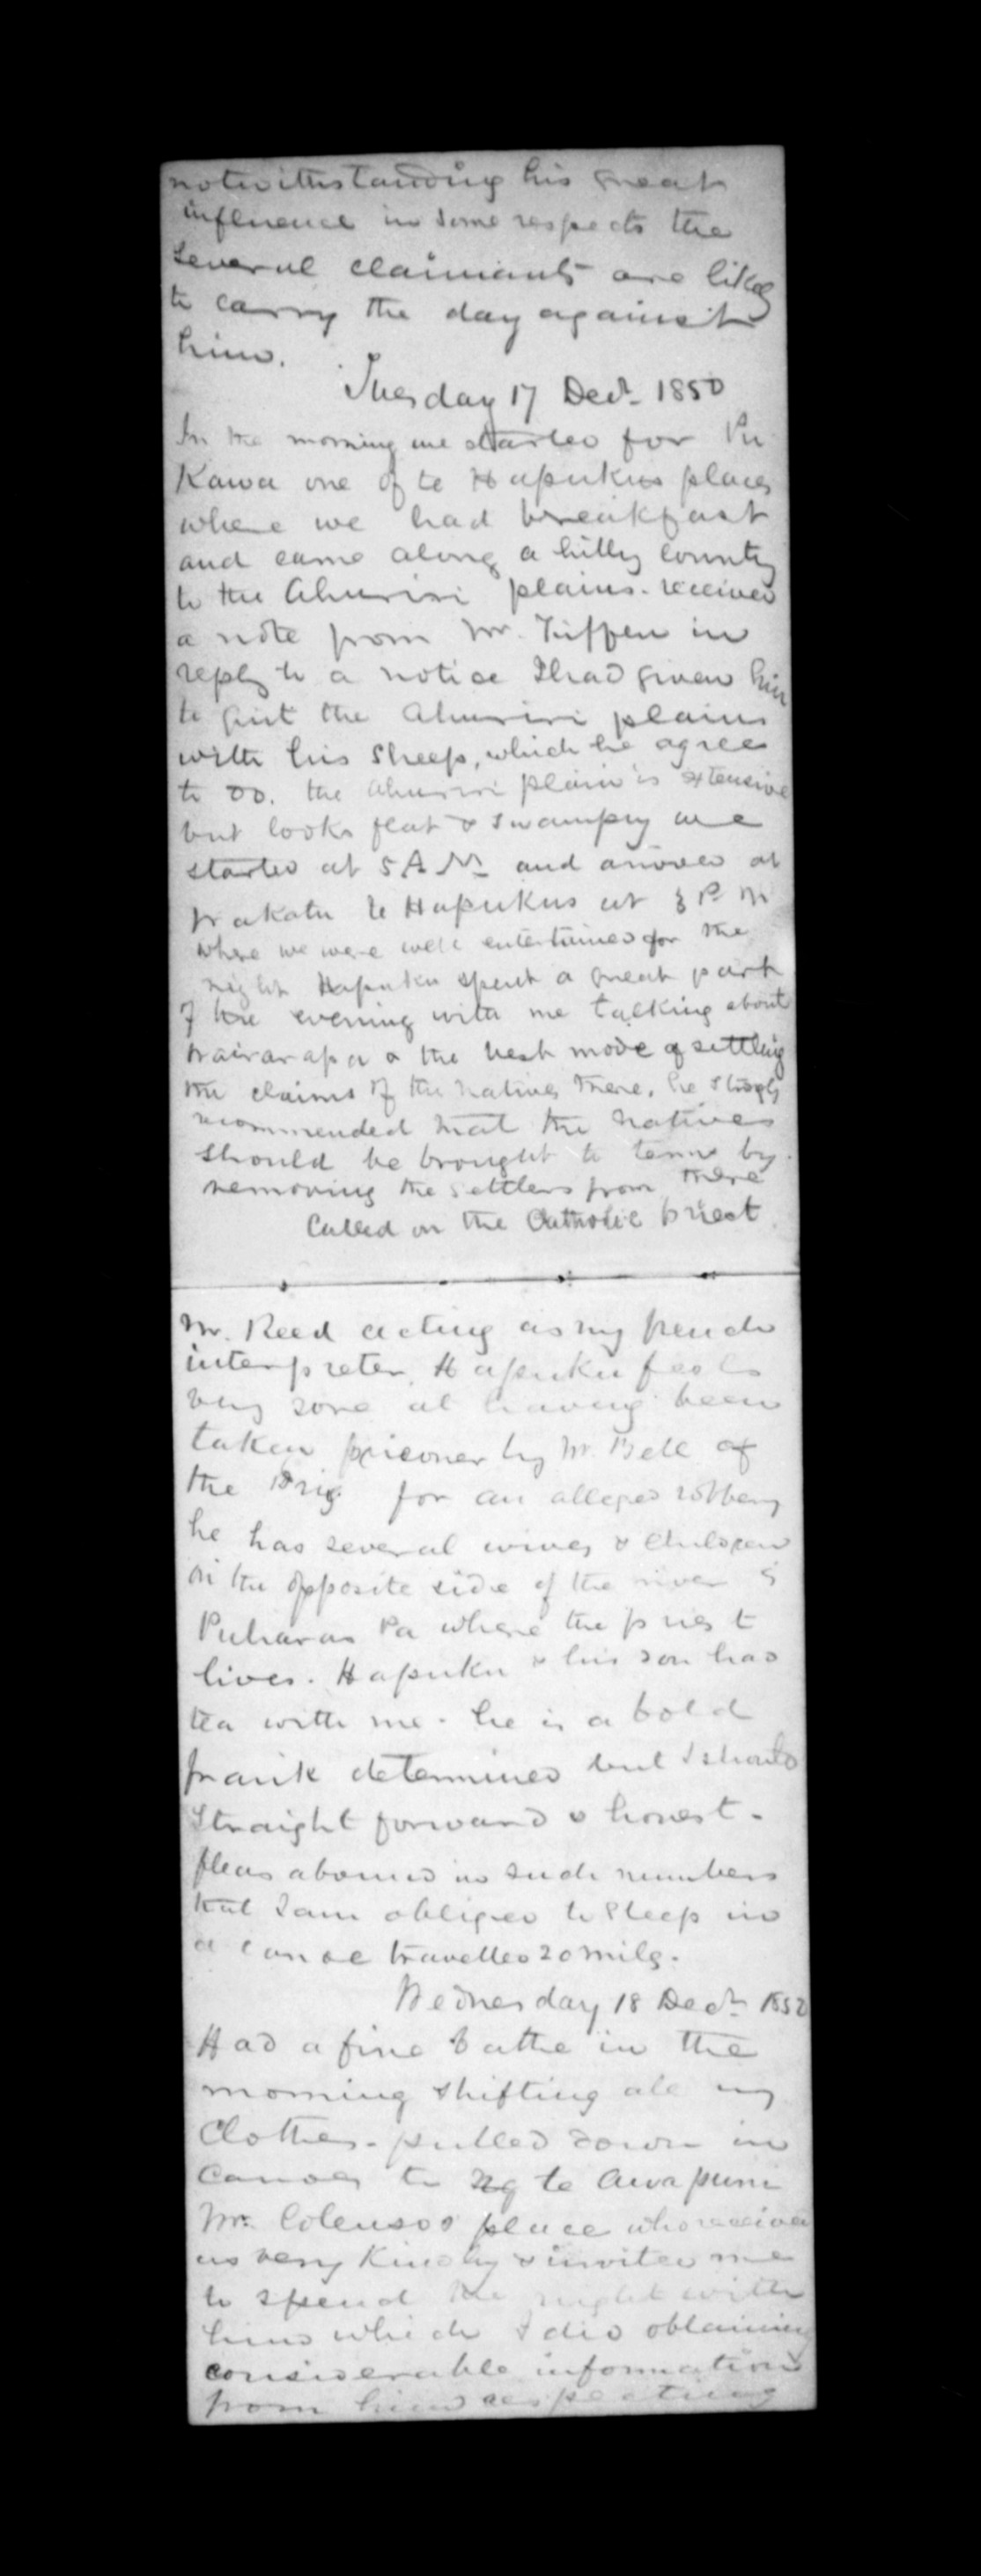 notwithstanding his great
influence in some respects the
several claimants are likely
to carry the day against
him.
Tuesday 17 Decr. 1850
In the morning we started for Pu
Kawa one of te Hapukus places
where we had breakfast
and came along a hilly country
to the Ahuriri plains. received
a note from Mr. Tiffen in
reply to a notice I had given him
to quit the Ahuriri plains
with his sheep, which he agrees
to do. the Ahuriri plain is extensive
but looks flat & swampy we
started at 5 A M and arrived at
Wakatu te Hapukus at 3 P M
where we were well entertained for the
night Hapuku spent a great part
of the evening with me talking about
Wairarapa & the best mode of settling
the claims of the natives there, he strongly
recommended that the natives
should be brought to terms by
removing the settlers from there
Called on the Catholic priest
Mr. Reed acting as my french
interpreter, Hapuku feels
very sore at having been
taken prisoner by Mr. Bell of
the Brig for an alleged robbery
he has several wives & children
on the opposite side of the river is
Puharas Pa where the priest
lives. Hapuku & his son had
tea with me. he is a bold
frank determined but I should
straight forward & honest.
fleas abound in such numbers
that I am obliged to sleep in
a canoe travelled 20 miles.
Wednesday 18 Decr. 1850
Had a fine bathe in the
morning shifting all my
Clothes. pulled down in
canoes to te Awapuni
Mr. Colensos place who received
us very kindly & invited me
to spend the night with
him which I did obtaining
considerable information
from him respecting